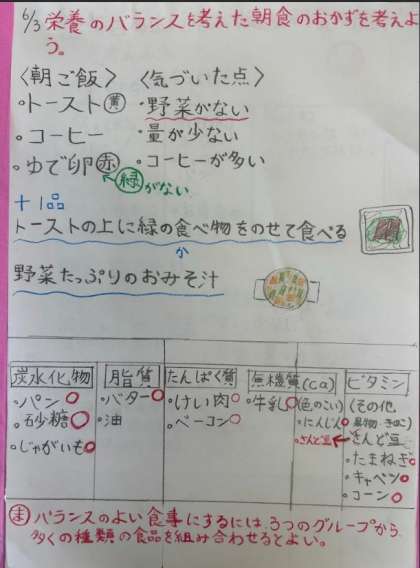 6/3 栄養のバランスを考えた朝食のおかずを考えよ
う。
〈朝ご飯〉 〈気づいた点〉
・トースト黄 ・野菜がない
・コーヒー ・量が少ない
・ゆで卵赤 ・コーヒーが多い
緑がない
+1品
トーストの上に緑の食べ物をのせて食べる
か
野菜たっぷりのおみそ汁
炭水化物 脂質 たんぱく質 無機質(Ca) ビタミン
・パン ・バター ・けい肉 ・牛乳 (色のこい) (その他
・砂糖 ・油 ・ベーコン ・にんじん 果物・きのこ)
・じゃがいも ・さんど豆 さんど豆
・たまねぎ
・キャベツ
・コーン
ま バランスのよい食事にするには、3つのグループから
多くの種類の食品を組み合わせるとよい。